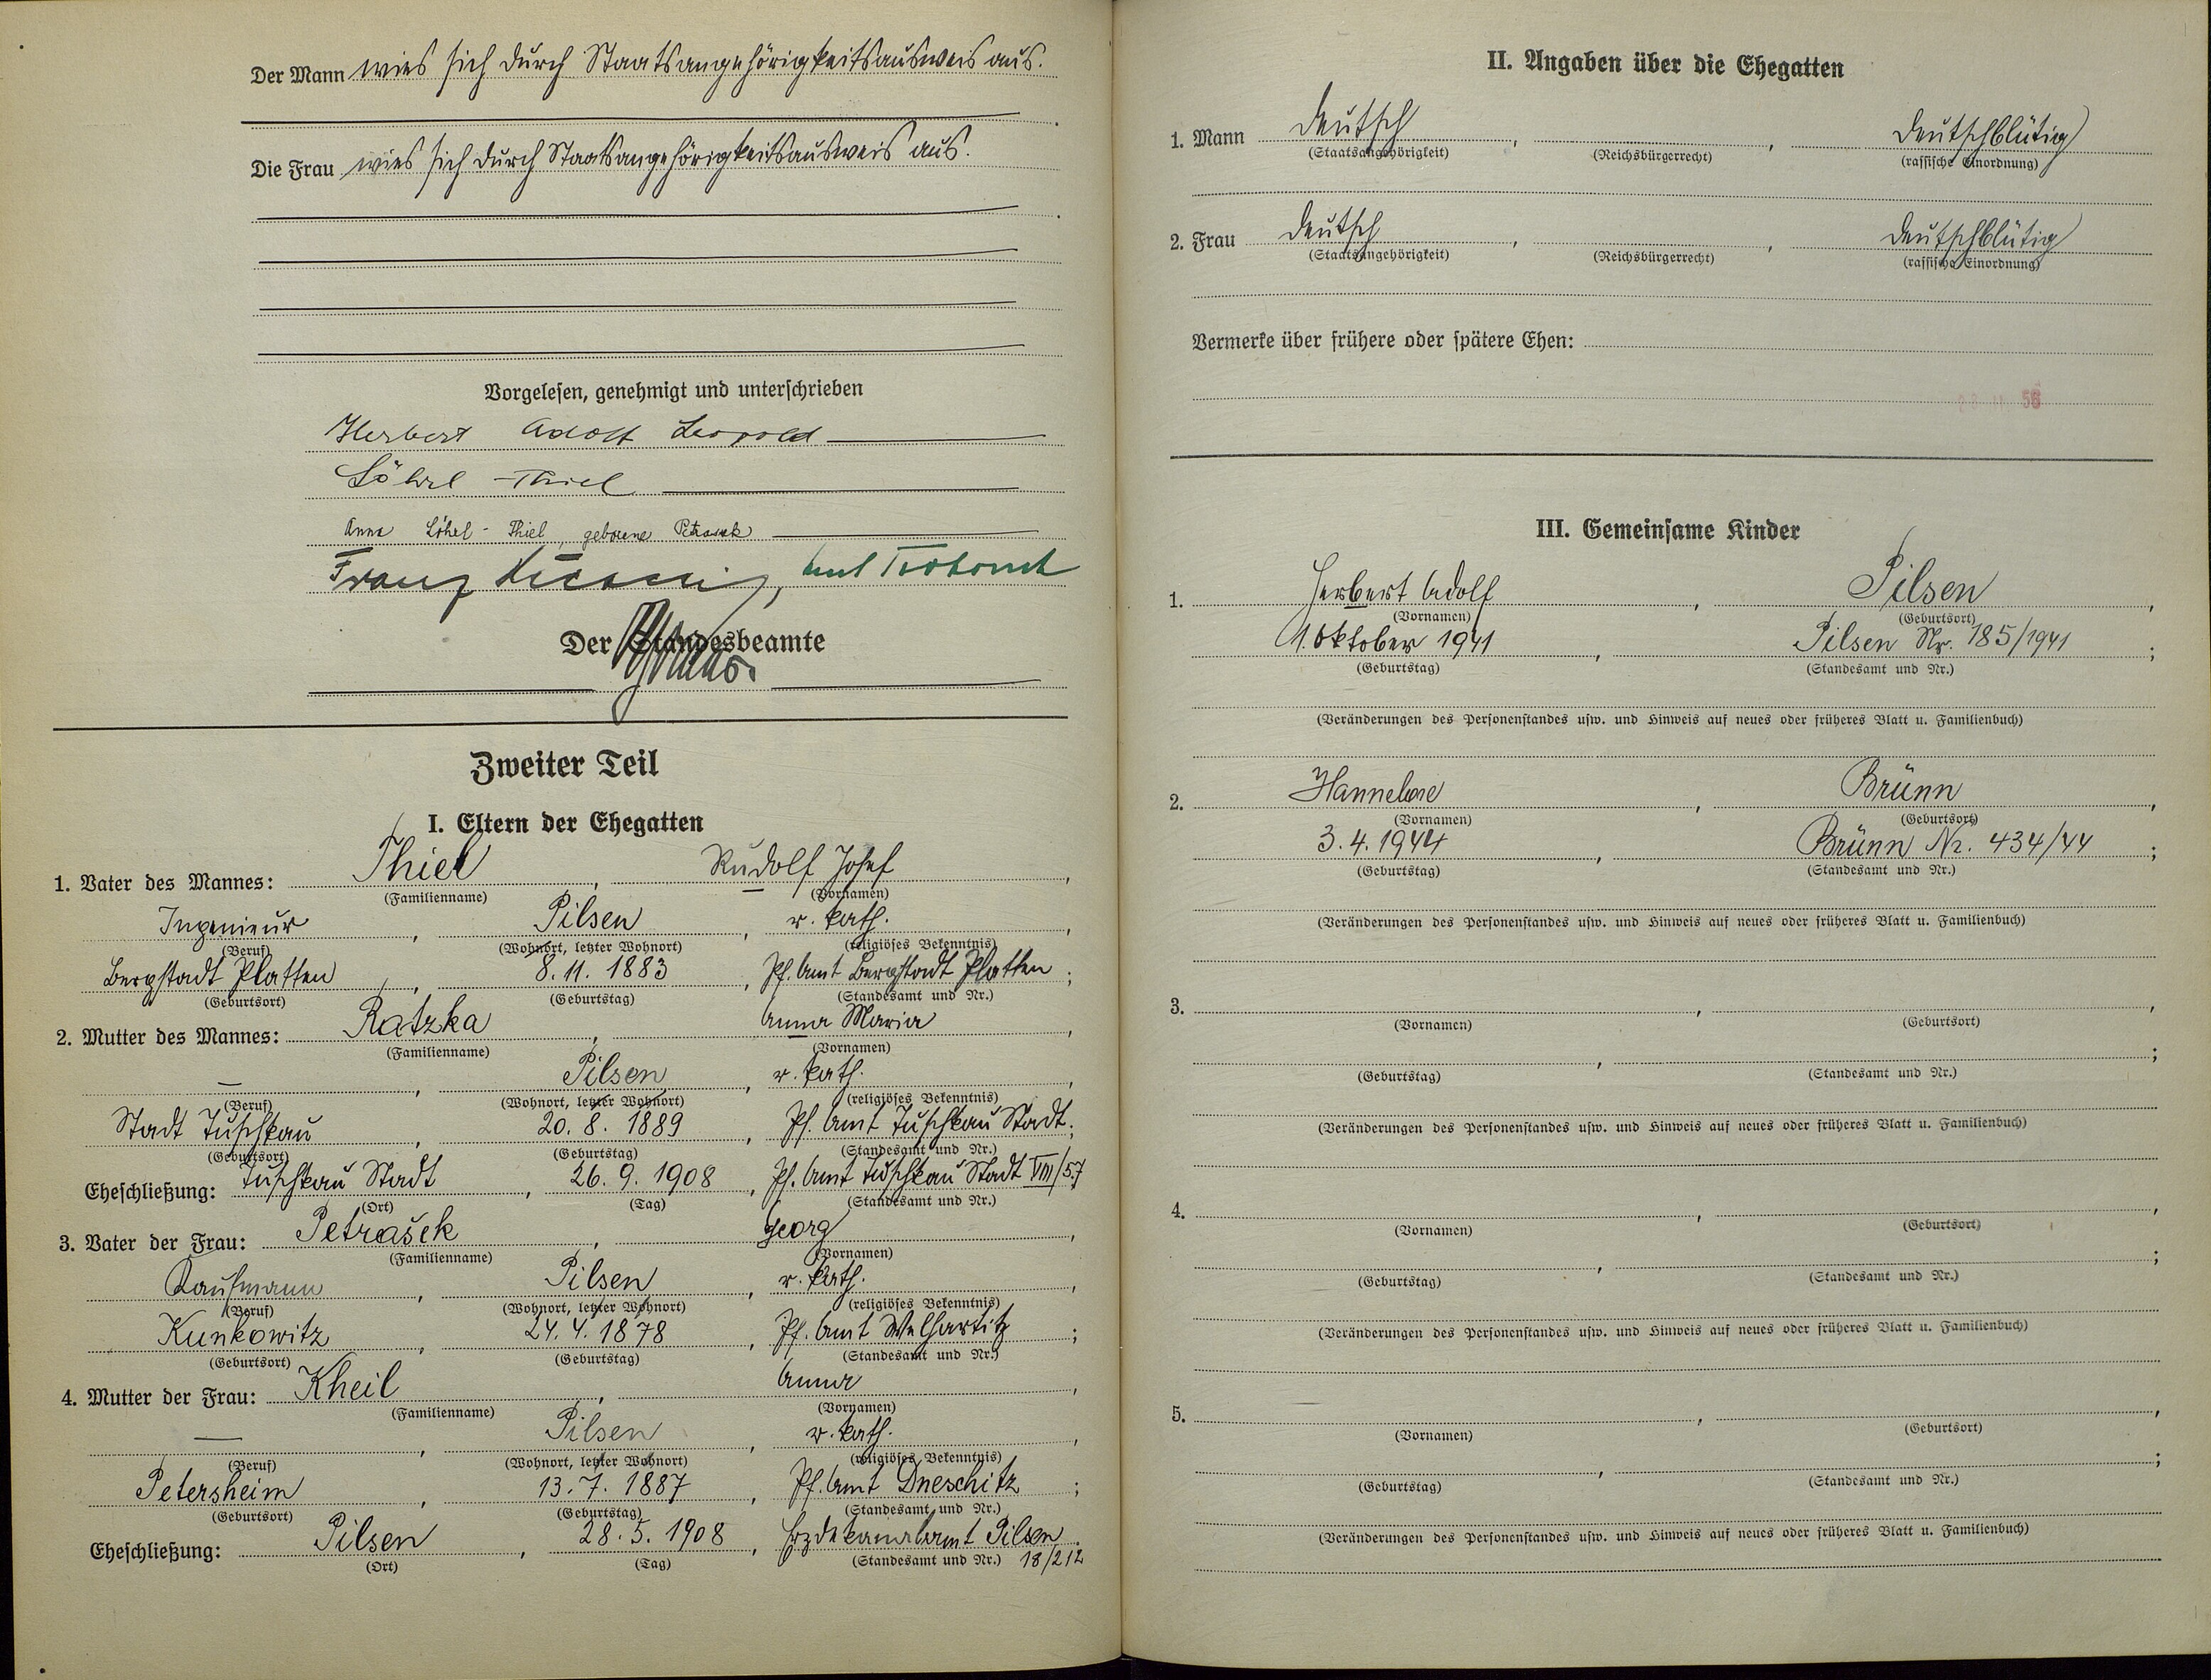 Der Mann wies sich durch Staatsangehörigkeitsausweis aus.
Die Frau wies sich durch Staatsangehörigkeitsausweis aus.
Vorgelesen, genehmigt und unterschrieben
Herbert Adolf Leopold
Löhrl-Thiel
Anna Löhrl-Thiel, geborene Petrasek
Franz
Der Standesbeamte
Zweiter Teil
I. Eltern der Ehegatten
1. Vater des Mannes: Thiel, Rudolf Josef,
(Familienname) (Vornamen)
Ingenieur, Pilsen, r. kath.,
(Beruf) (Wohnort, letzter Wohnort) (religiöses Bekenntnis)
Bergstadt Platten, 8.11.1883, Pf. Amt Bergstadt Platten;
(Geburtsort) (Geburtstag) (Standesamt und Nr.)
2. Mutter des Mannes: Ratzka, Anna Maria,
(Familienname) (Vornamen)
—, Pilsen, r. kath.,
(Beruf) (Wohnort, letzter Wohnort) (religiöses Bekenntnis)
Stadt Tuschkau, 20.8.1889, Pf. Amt Tuschkau Stadt;
(Geburtsort) (Geburtstag) (Standesamt und Nr.)
Eheschließung: Tuschkau Stadt, 26.9.1908, Pf. Amt Tuschkau Stadt VIII/57
(Ort) (Tag) (Standesamt und Nr.)
3. Vater der Frau: Petrašek, Georg,
(Familienname) (Vornamen)
Kaufmann, Pilsen, r. kath.,
(Beruf) (Wohnort, letzter Wohnort) (religiöses Bekenntnis)
Kunkowitz, 24.4.1878, Pf. Amt Welhartitz;
(Geburtsort) (Geburtstag) (Standesamt und Nr.)
4. Mutter der Frau: Kheil, Anna,
(Familienname) (Vornamen)
—, Pilsen, r. kath.,
(Beruf) (Wohnort, letzter Wohnort) (religiöses Bekenntnis)
Petersheim, 13.7.1887, Pf. Amt Dneschitz;
(Geburtsort) (Geburtstag) (Standesamt und Nr.)
Eheschließung: Pilsen, 28.5.1908, Erzdekanalamt Pilsen.
(Ort) (Tag) (Standesamt und Nr.) 18/212
II. Angaben über die Ehegatten
1. Mann deutsch, , deutschblütig
(Staatsangehörigkeit) (Reichsbürgerrecht) (rassische Einordnung)
2. Frau deutsch, , deutschblütig
(Staatsangehörigkeit) (Reichsbürgerrecht) (rassische Einordnung)
Vermerke über frühere oder spätere Ehen:
III. Gemeinsame Kinder
1. Herbert Adolf, Pilsen,
(Vornamen) (Geburtsort)
1. Oktober 1941, Pilsen Nr. 185/1941;
(Geburtstag) (Standesamt und Nr.)
(Veränderungen des Personenstandes usw. und Hinweis auf neues oder früheres Blatt u. Familienbuch)
2. Hannelore, Brünn,
(Vornamen) (Geburtsort)
3.4.1944, Brünn Nr. 434/44;
(Geburtstag) (Standesamt und Nr.)
(Veränderungen des Personenstandes usw. und Hinweis auf neues oder früheres Blatt u. Familienbuch)
3. , ,
(Vornamen) (Geburtsort)
, ;
(Geburtstag) (Standesamt und Nr.)
(Veränderungen des Personenstandes usw. und Hinweis auf neues oder früheres Blatt u. Familienbuch)
4. , ,
(Vornamen) (Geburtsort)
, ;
(Geburtstag) (Standesamt und Nr.)
(Veränderungen des Personenstandes usw. und Hinweis auf neues oder früheres Blatt u. Familienbuch)
5. , ,
(Vornamen) (Geburtsort)
, ;
(Geburtstag) (Standesamt und Nr.)
(Veränderungen des Personenstandes usw. und Hinweis auf neues oder früheres Blatt u. Familienbuch)